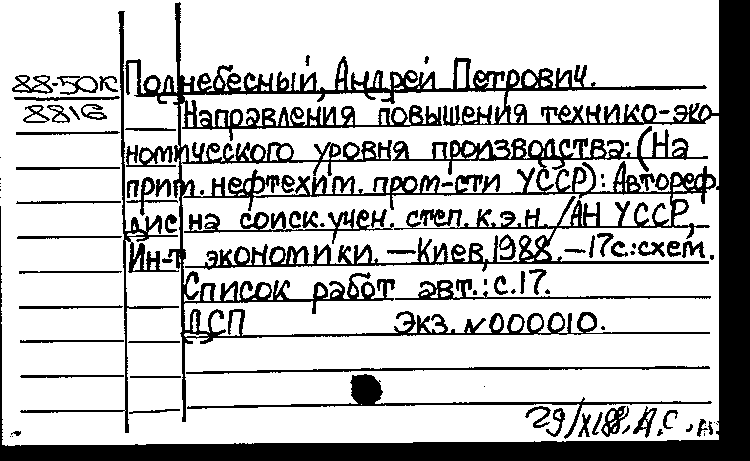 88-50к Поднебесный, Андрей Петрович.
8816 Направления повышения технико-эко-
номического уровня производства: (На
прим. нефтехим. пром-сти УССР): Автореф.
дис на соиск. учен. степ. к.э.н. /АН УССР,
Ин-т экономики. —Киев, 1988. —17с.:схем.
Список работ авт.: с.17.
ДСП Экз. №000010.
29/XI88. А.С.